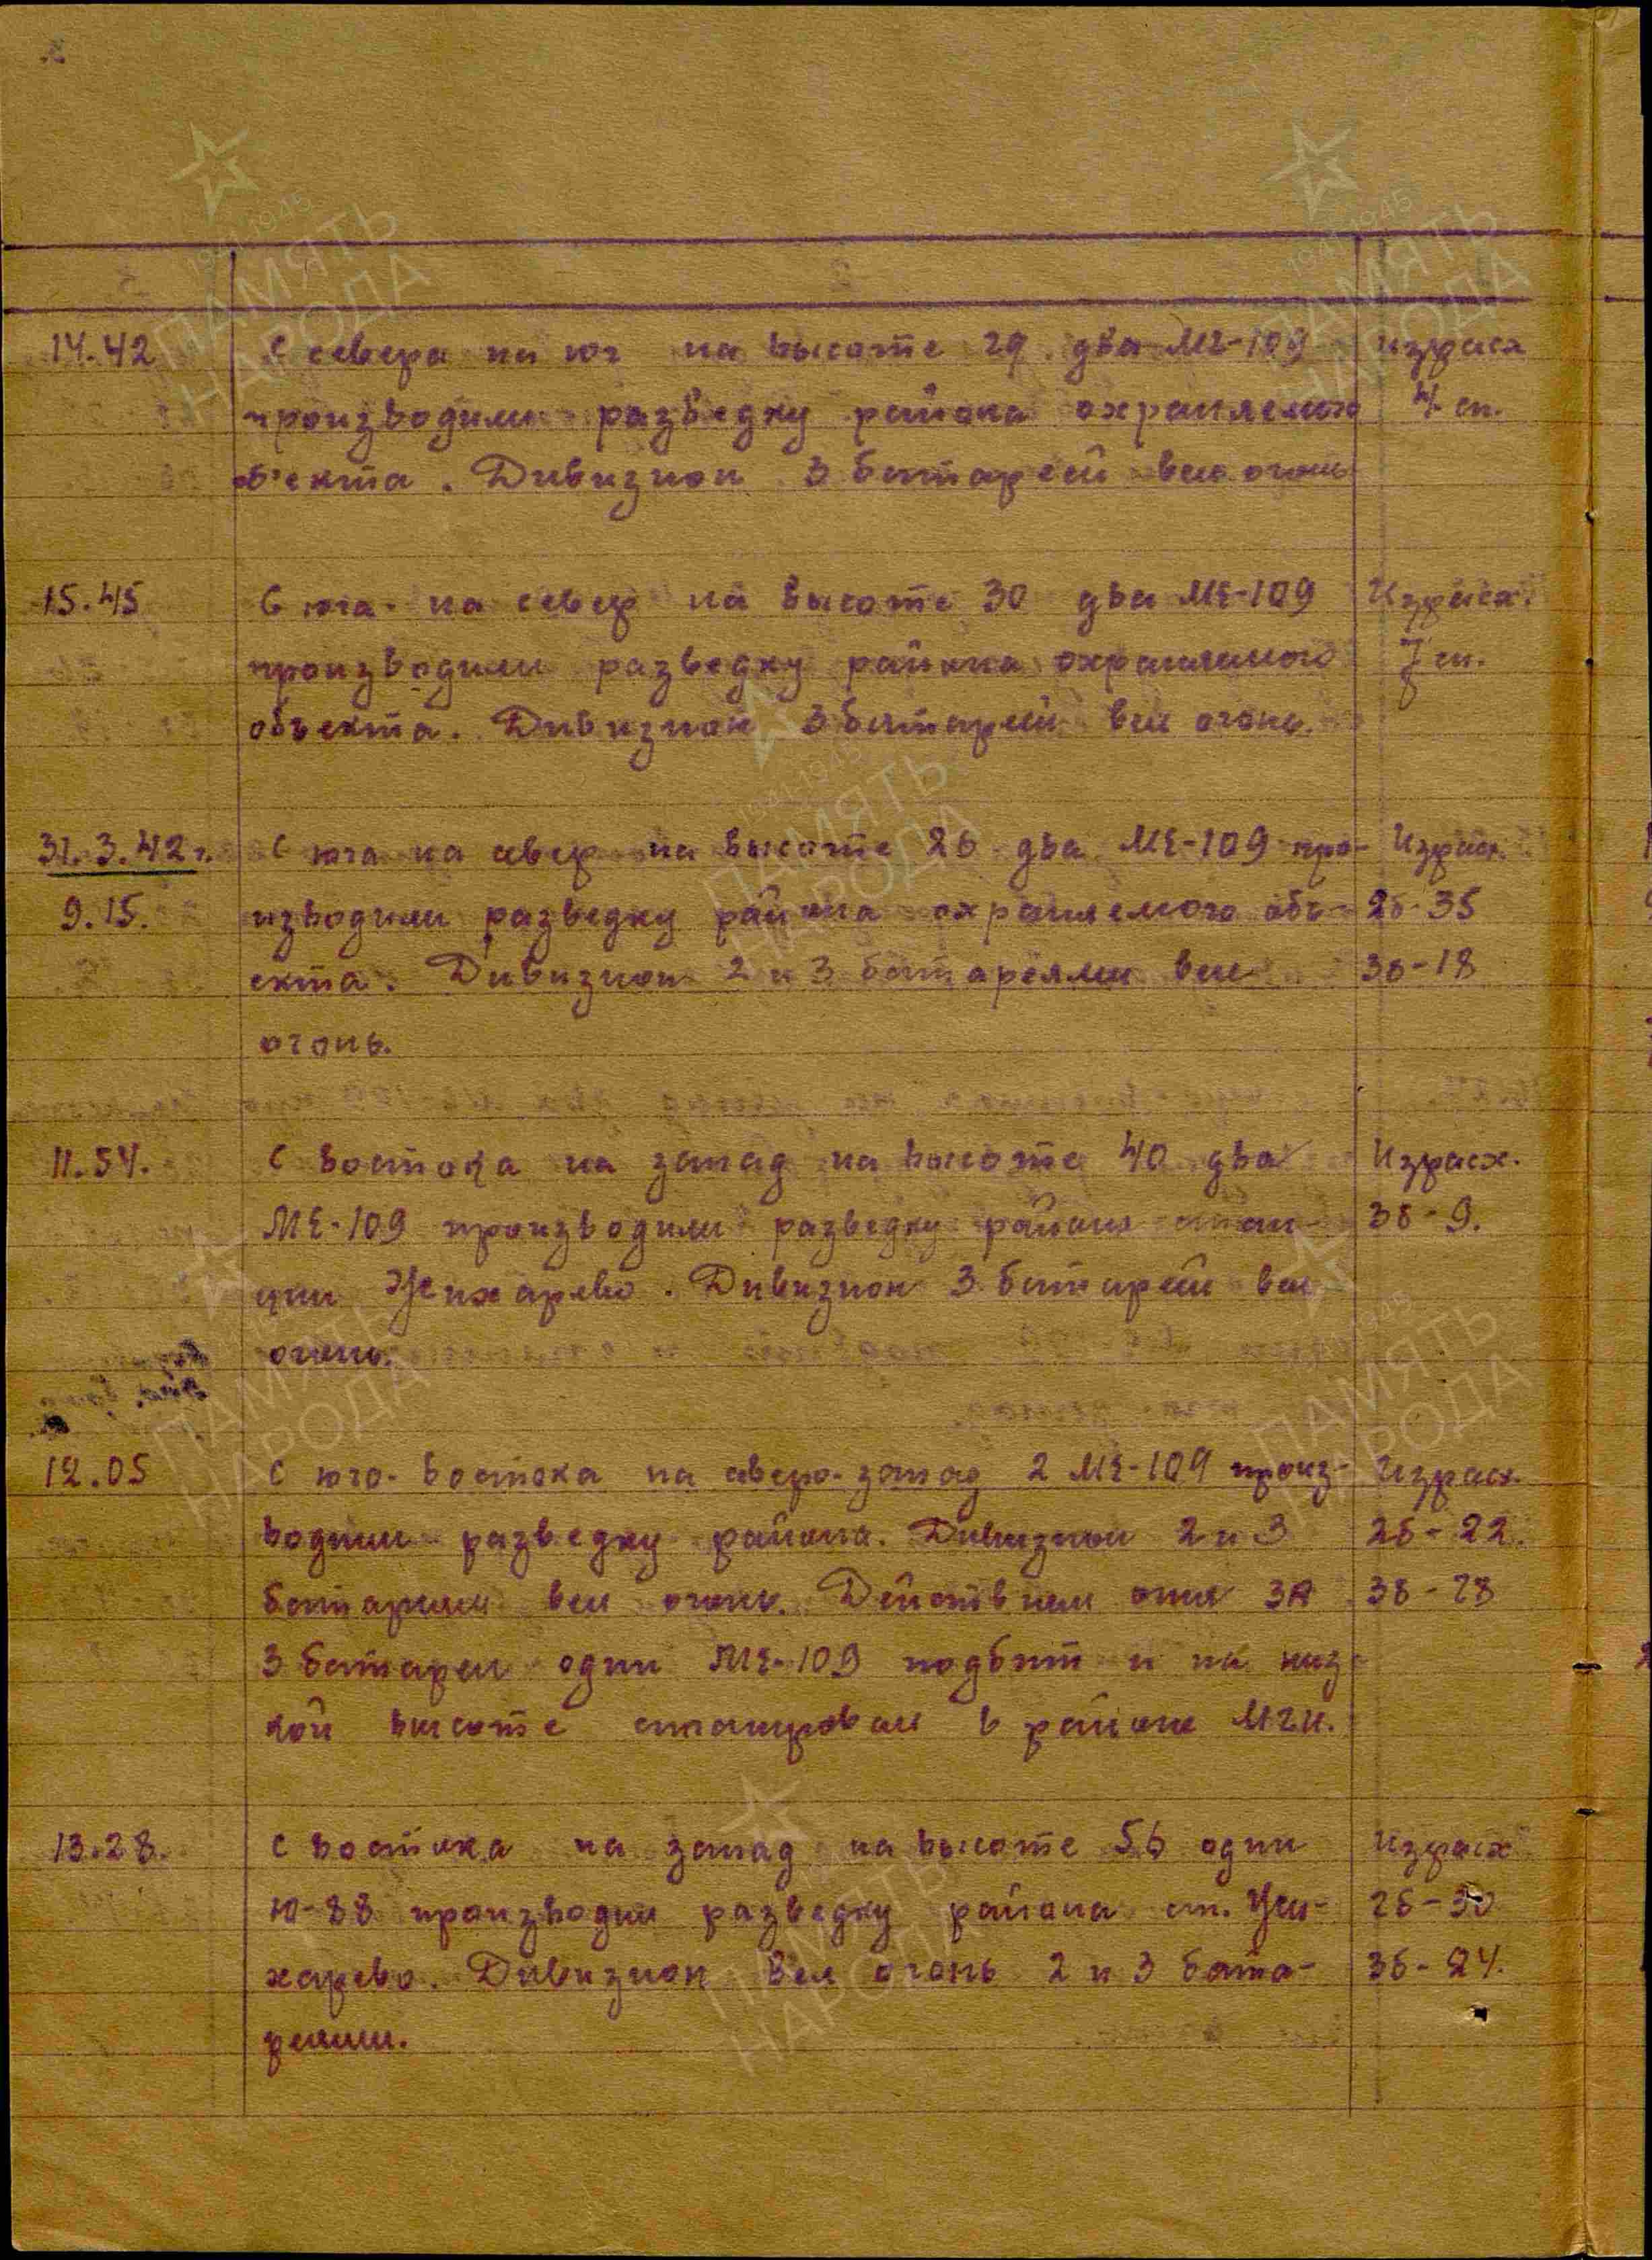 14.42 С севера на юг на высоте 29 два МЕ-109 израсх
производили разведку района охраняемого 4 сн.
об'екта. Дивизион 3 батареей вел огонь
15.45 С юга на север на высоте 30 два МЕ-109 Израсх.
производили разведку района охраняемого 7 сн.
объекта. Дивизион 3 батареей вел огонь.
31.3.42 г. С юга на север на высоте 26 два МЕ-109 про- Израсх.
9.15. изводили разведку района охраняемого объ- 2б-35
екта. Дивизион 2 и 3 батареями вел 3б-18
огонь.
11.54. С востока на запад на высоте 40 два Израсх.
МЕ-109 производили разведку района стан- 3б-9.
ции Жихарево. Дивизион 3 батареей вел
огонь.
12.05 С юго-востока на северо-запад 2 МЕ-109 произ- Израсх.
водили разведку района. Дивизион 2 и 3 2б-22.
батареями вел огонь. Действием огня ЗА 3б-28
3 батареи один МЕ-109 подбит и на низ-
кой высоте спланировал в районе МГИ.
13.28. С востока на запад на высоте 56 один Израсх
Ю-88 производил разведку района ст. Жи- 2б-30
харево. Дивизион вел огонь 2 и 3 бата- 3б-24.
реями.
1941-1945
ПАМЯТЬ
НАРОДА